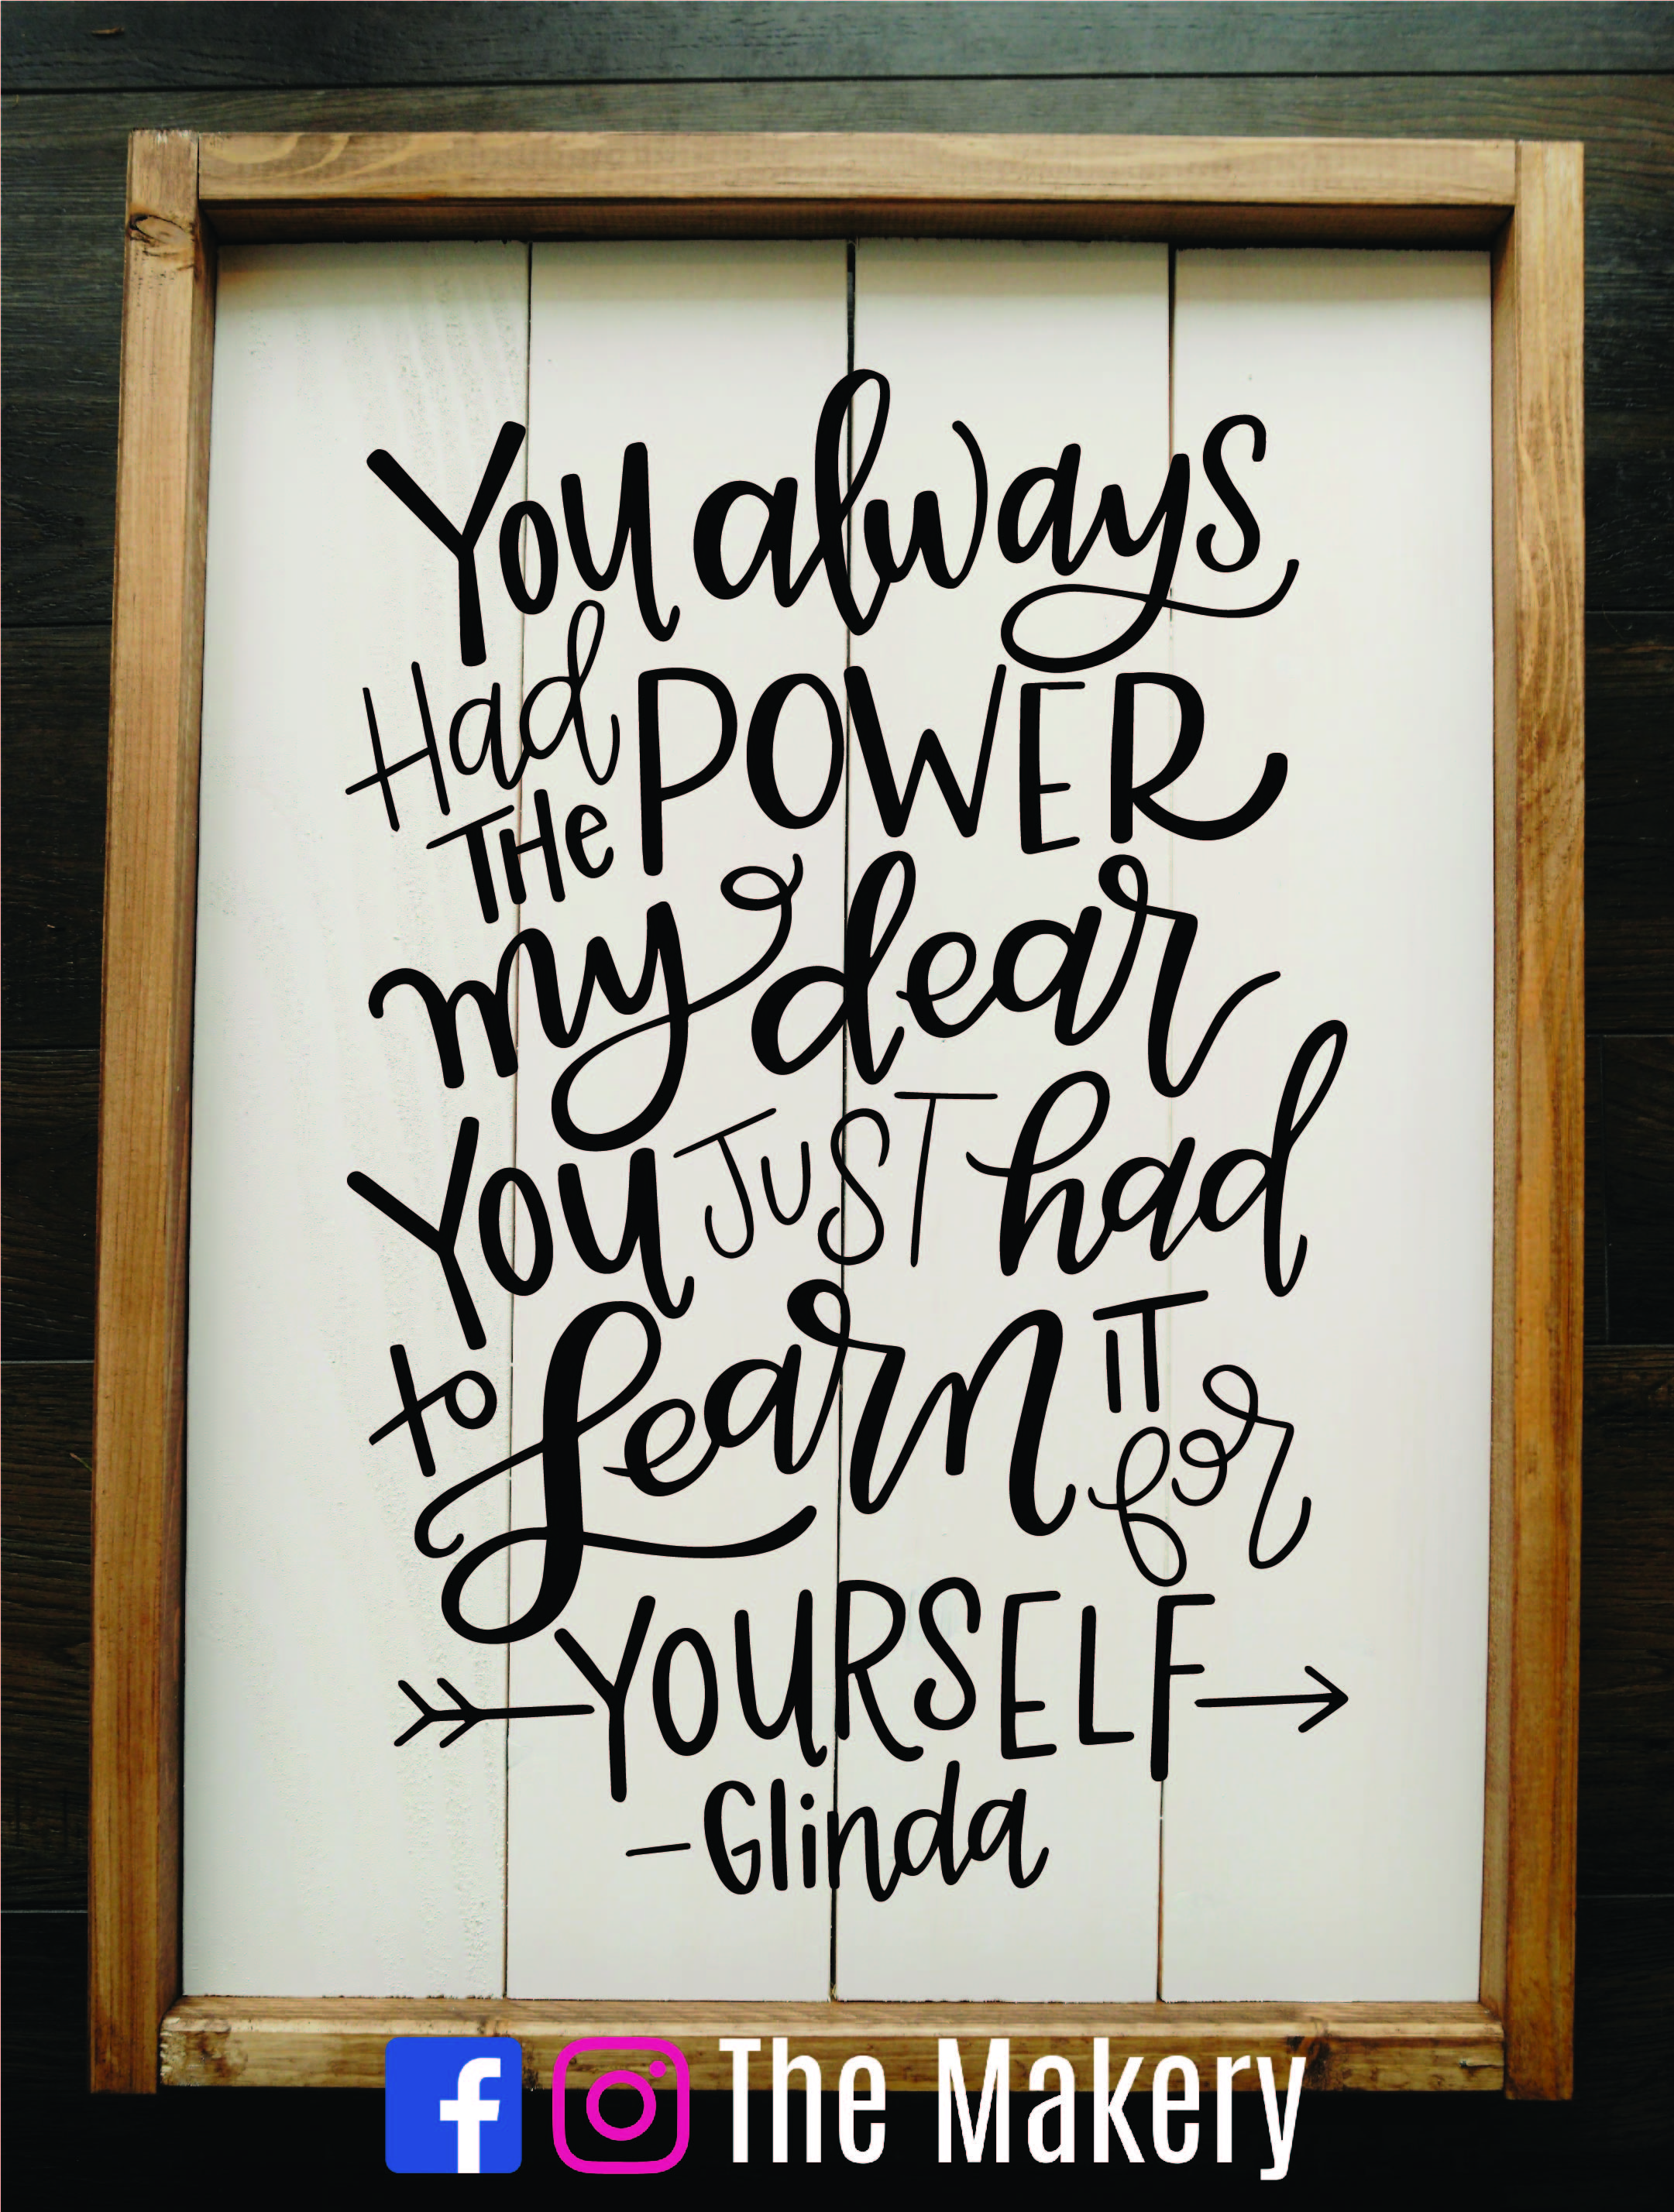 You always
Had THe POWER
my dear
YOU JuST had
to Learn IT for
YOURSELF
-Glinda
f The Makery